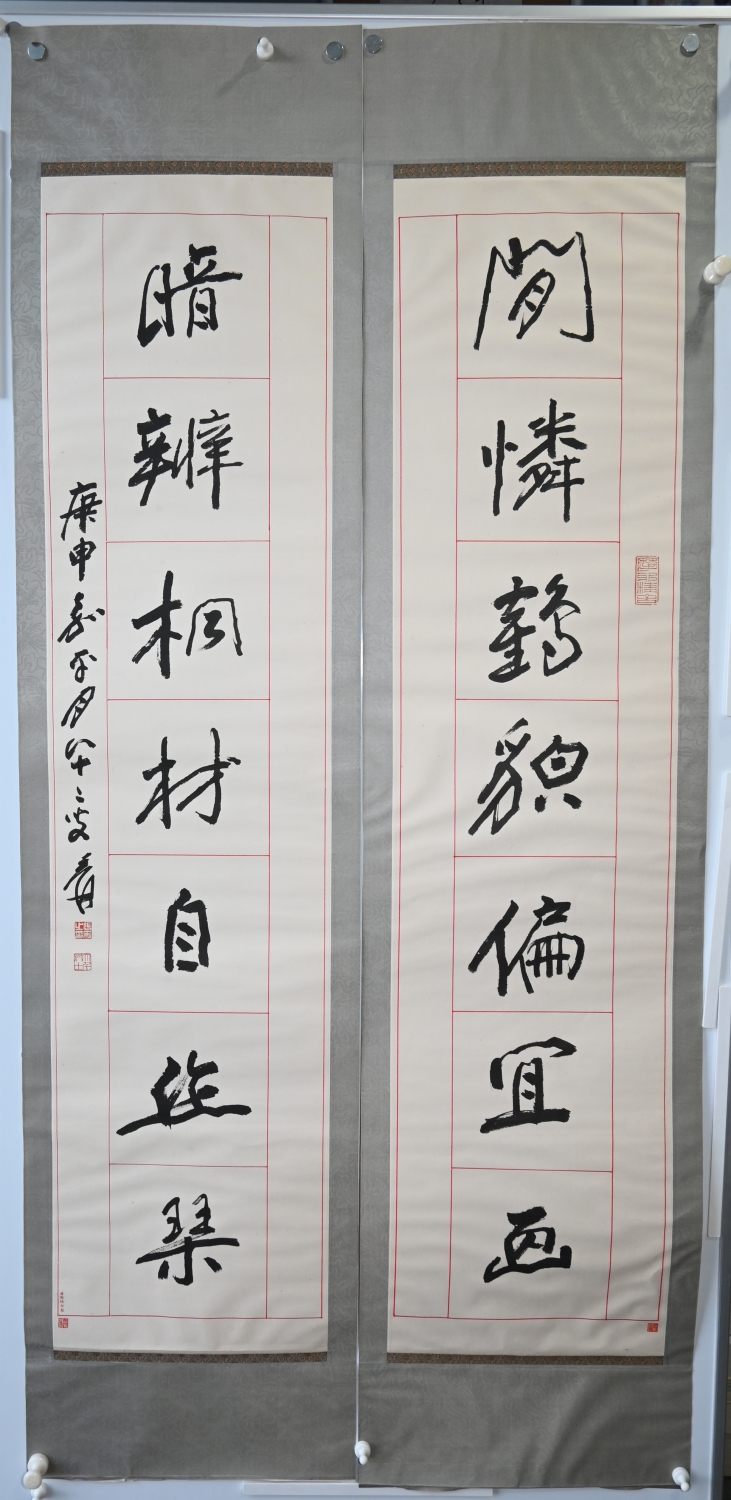 閒憐鶴貌偏宜画
暗辨桐材自作琴
庚申嘉平月八十二叟爰